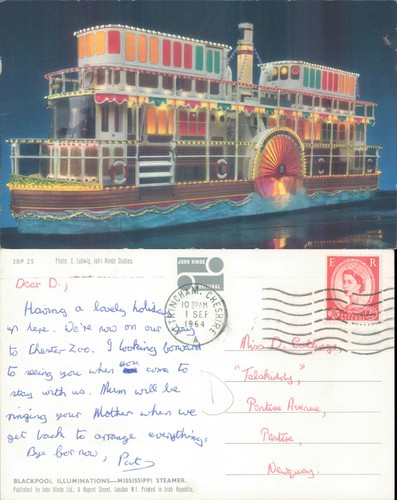 2BP 25 Photo: E. Ludwig, John Hinde Studios.
JOHN HINDE
ORIGINAL
ALTRINCHAM, CHESHIRE
10 30AM
1 SEP
1964
A
E R
Dear D.,
Having a lovely holiday
up here. We're now on our way
to Chester Zoo. I looking forward
to seeing you when you come to
stay with us. Mum will be
ringing your Mother when we
get back to arrange everything,
Bye for now, Pat
Miss D.
Pentire Avenue,
Pentire,
Newquay.
BLACKPOOL ILLUMINATIONS—MISSISSIPPI STEAMER.
Published by John Hinde Ltd., 6 Regent Street, London W1. Printed in Irish Republic.